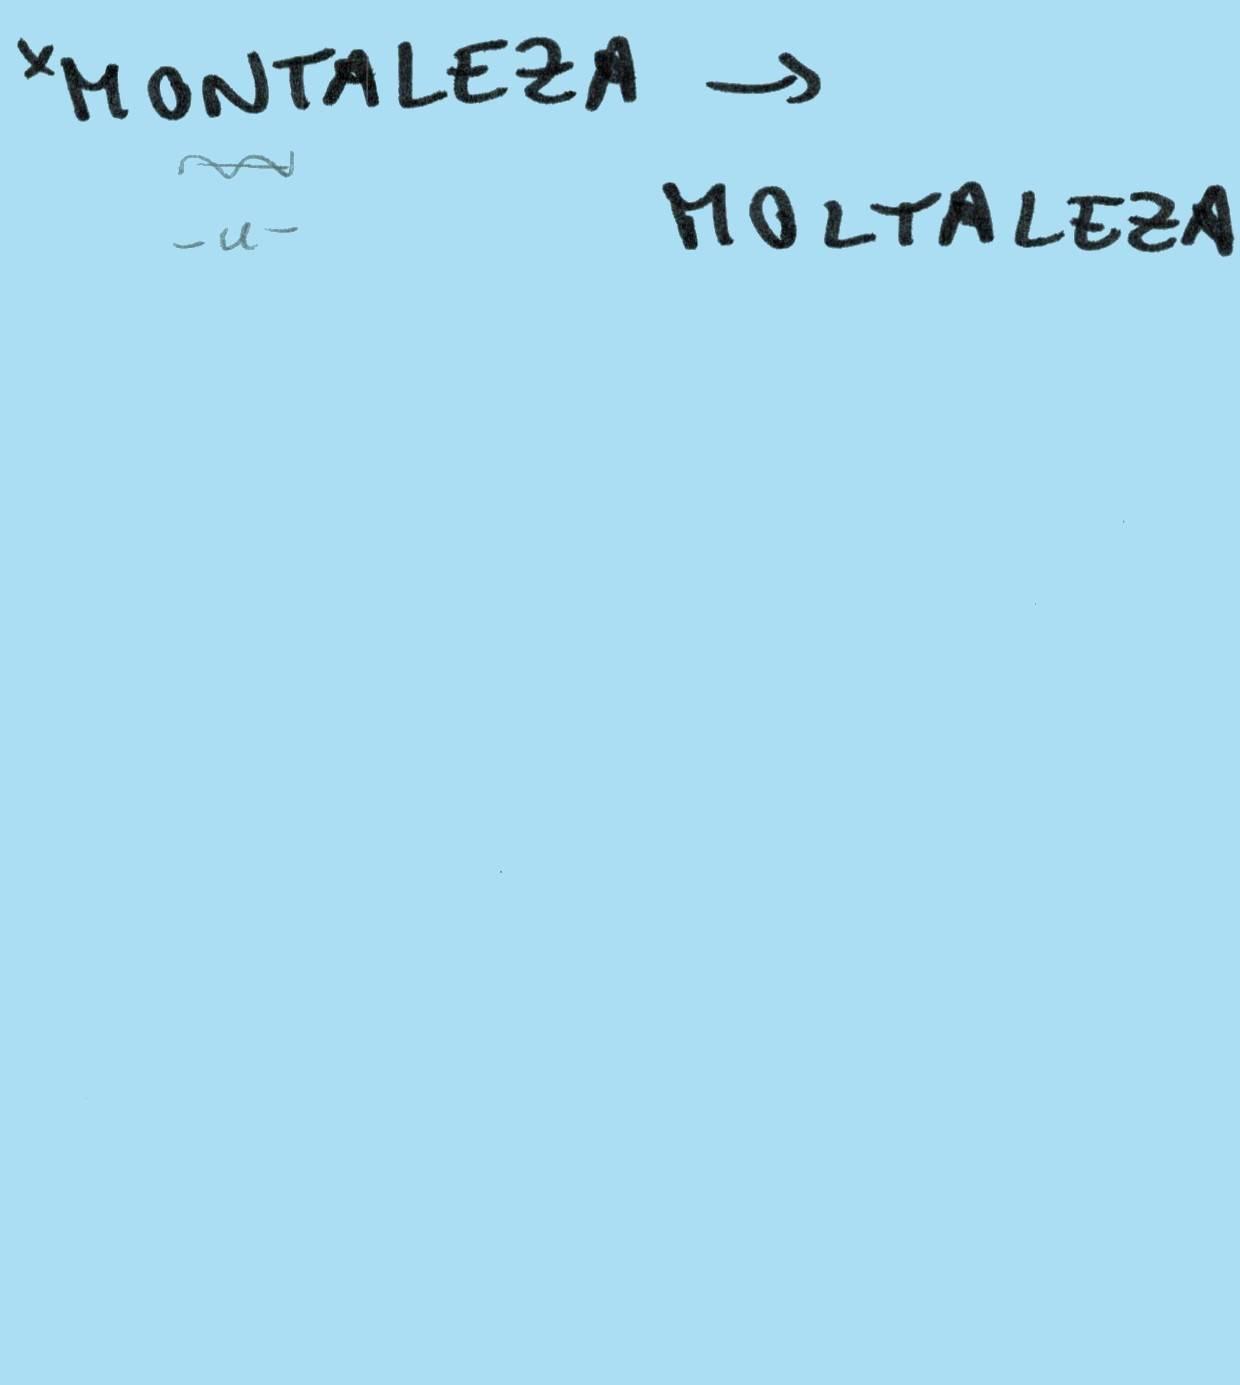 ×MONTALEZA →
-u-
MOLTALEZA